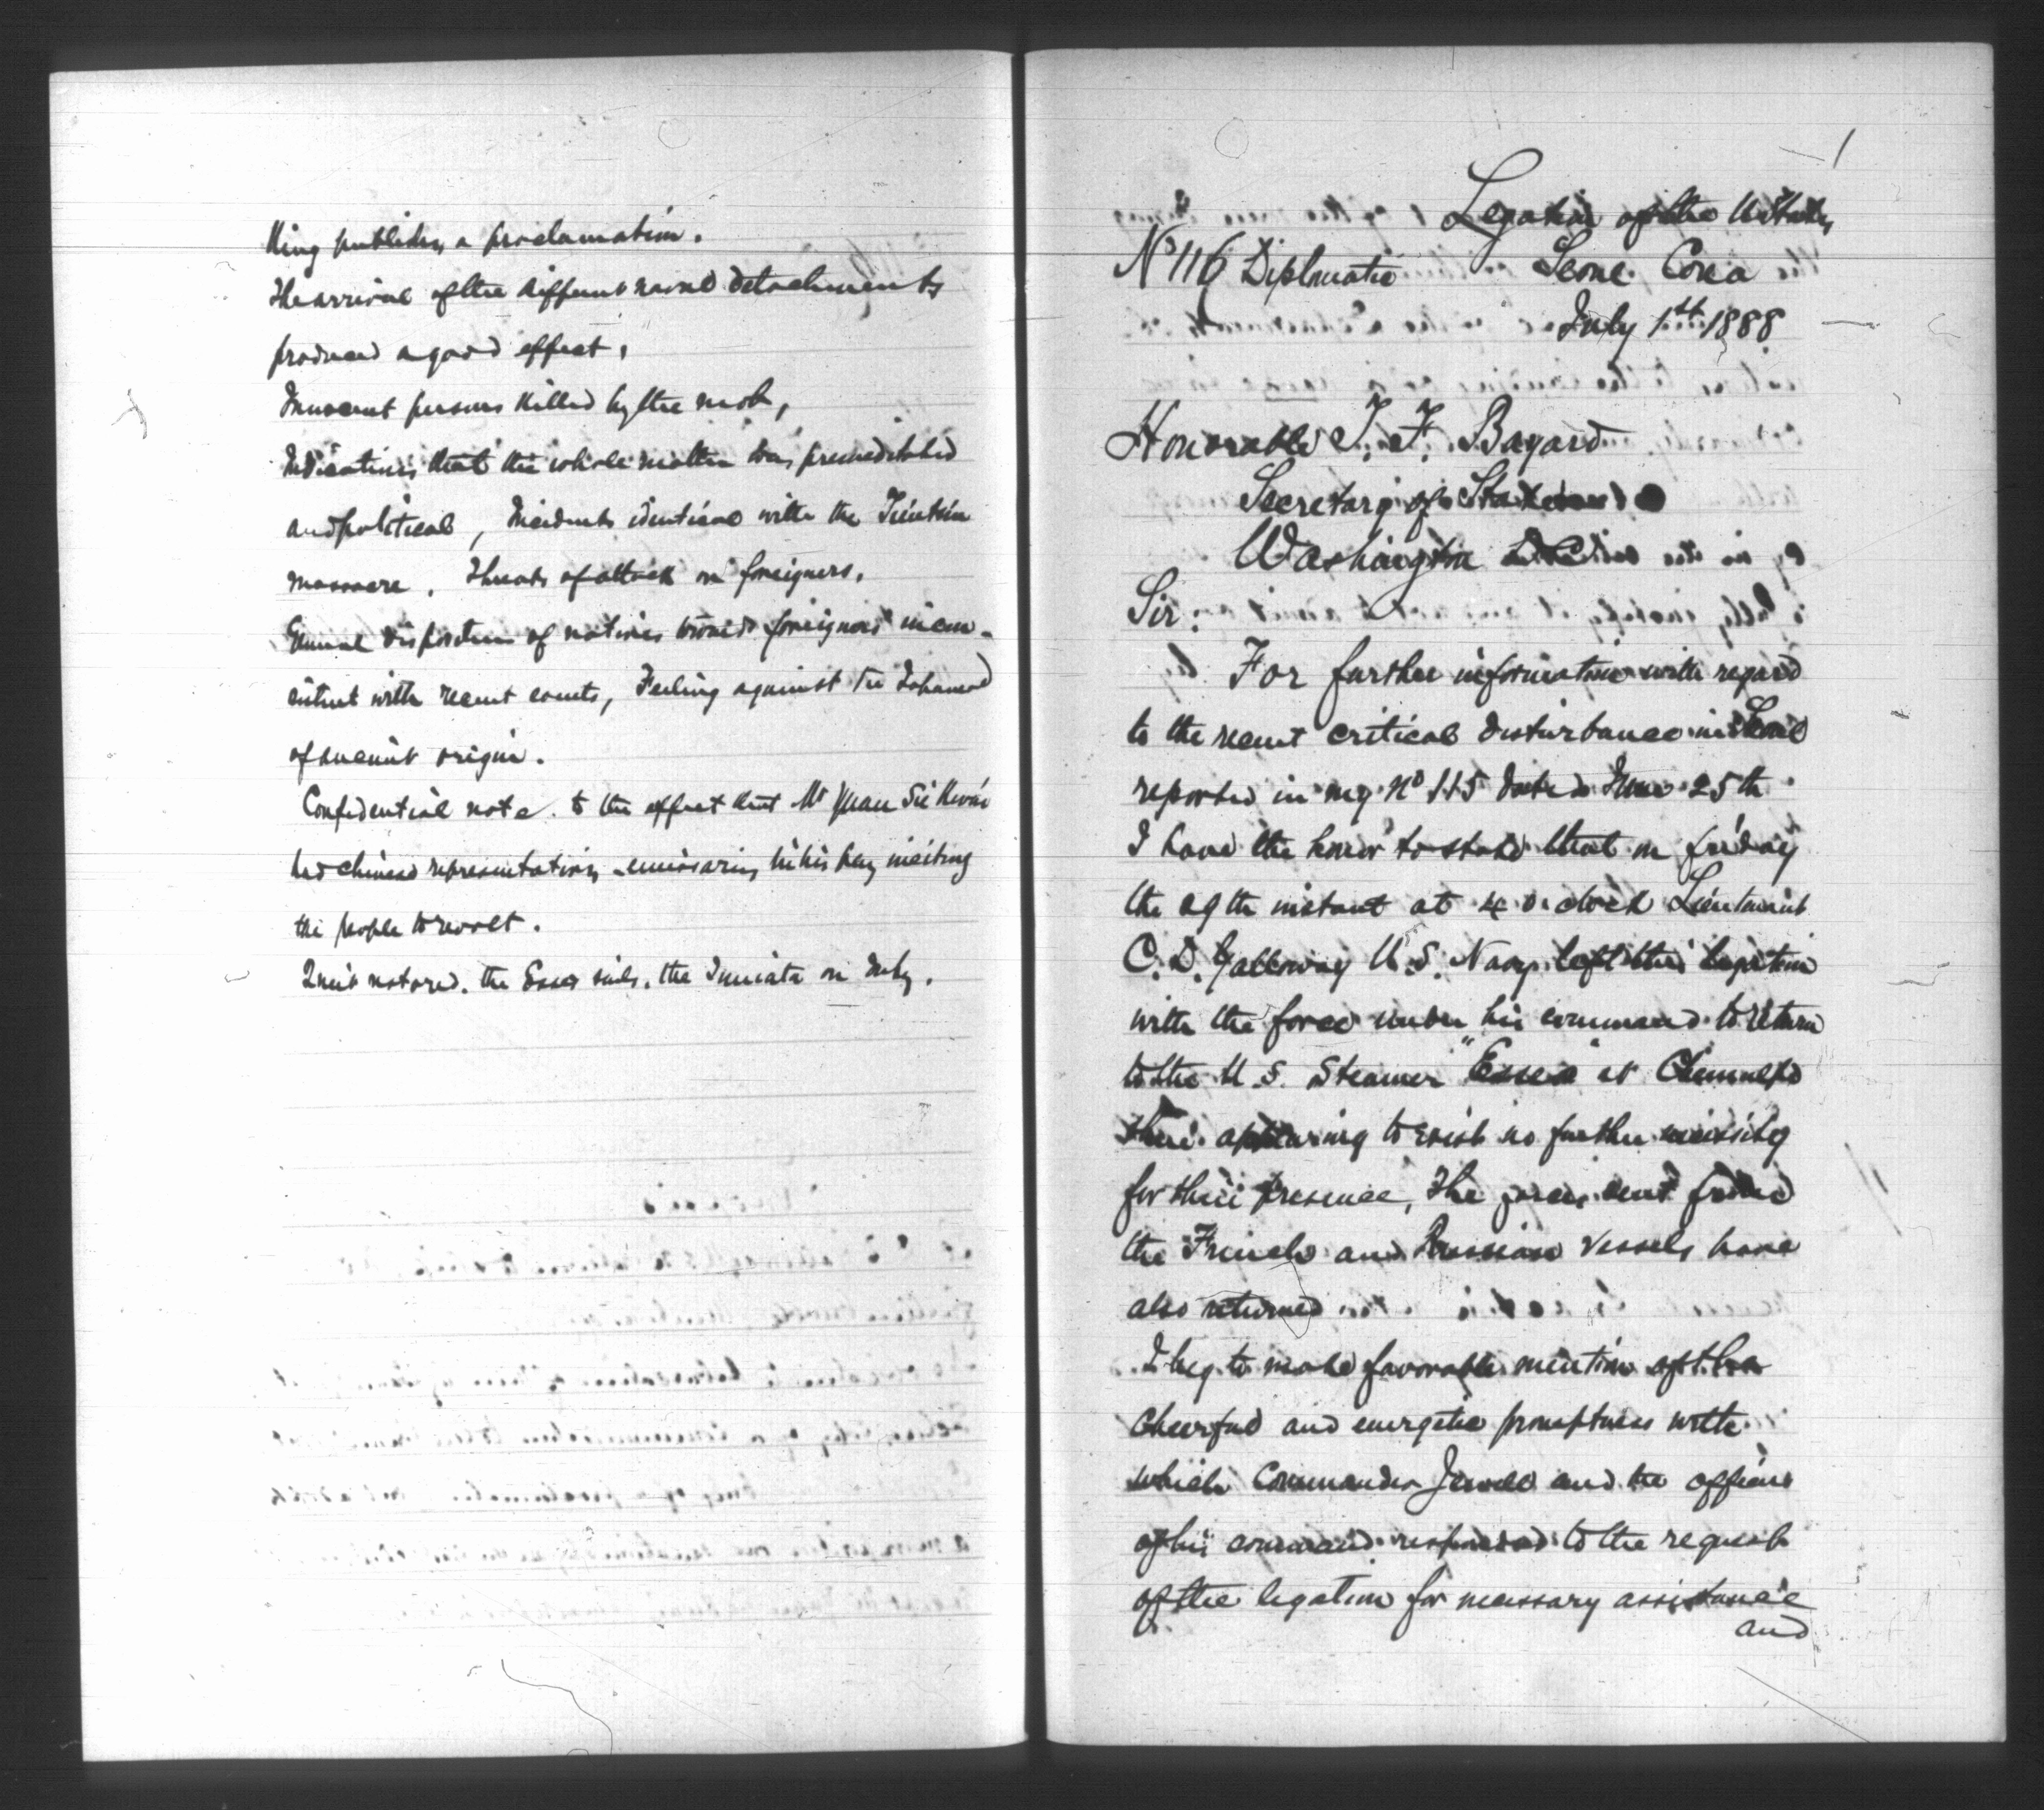 King publishes a proclamation.
The arrival of the different naval detachments
produced a good effect.
Innocent persons killed by the mob,
Indications that the whole matter was premeditated
and political, Incidents identical with the Tientsin
massacre. Threats of attack on foreigners.
General disposition of natives towards foreigners incon-
sistent with recent events, Feeling against the Japanese
of ancient origin.
Confidential note. to the effect that Mr Yuan Sie Kwai
had chinese representatives emissaries in his pay inciting
the people to revolt.
Quiet restored. the Essex sails. the Juniata on duty.
1
Legation of the United States
No 116 Diplomatic Seoul Corea
July 1st 1888
Honorable T. F. Bayard
Secretary of State
Washington D.C.
Sir:
For further information with regard
to the recent critical disturbance in Seoul
reported in my No 115 dated June 25th
I have the honor to state that on friday
the 29th instant at 4 o'clock Lieutenant
C. D. Galloway U.S. Navy left this legation
with the force under his command to return
to the U.S. Steamer "Essex" at Chemulpo
there appearing to exist no further necessity
for their presence, The forces sent from
the French and Russian vessels have
also returned
I beg to make favorable mention of the
cheerful and energetic promptness with
which Commander Jewell and the officers
of his command responded to the request
of the legation for necessary assistance
and